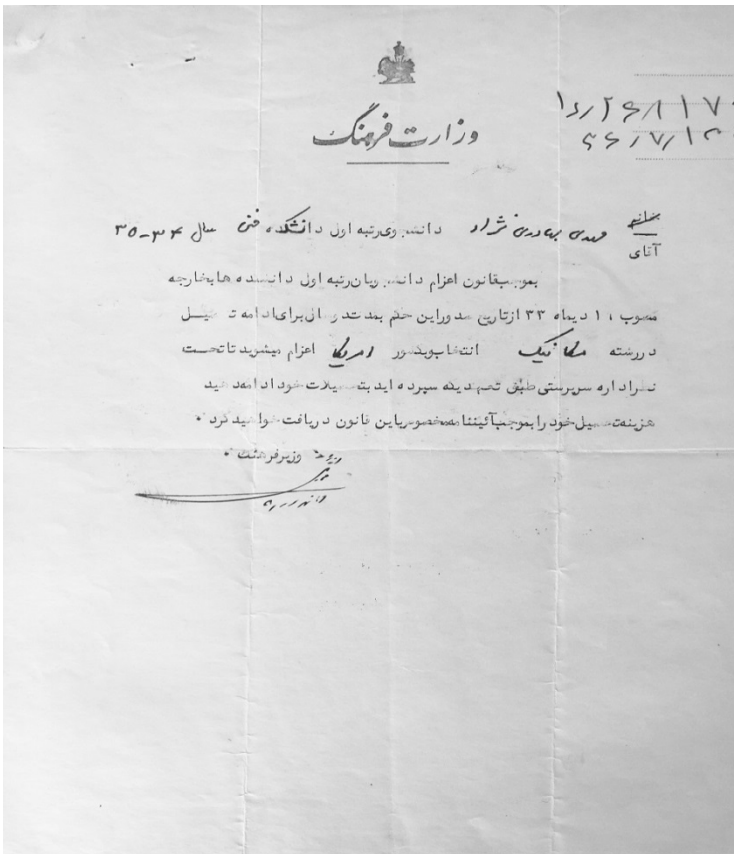 وزارت فرهنگ
۱۷
خانم
آقای
مهدی بهادری نژاد دانشجوی رتبه اول دانشکده فنی سال ۳۴-۳۵
بموجب قانون اعزام دانشجویان رتبه اول دانشکده ها بخارجه
مصوب ۱۰ دیماه ۳۳ از تاریخ صدور این حکم بمدت سالی برای ادامه تحصیل
در رشته مکانیک انتخاب و بکشور امریکا اعزام میشوید تا تحت
نظر اداره سرپرستی طبق تعهدیکه سپرده اید بتحصیلات خود ادامه دهید
هزینه تحصیل خود را بموجب آئیننامه مخصوص باین قانون دریافت خواهید کرد •
وزیر فرهنگ •